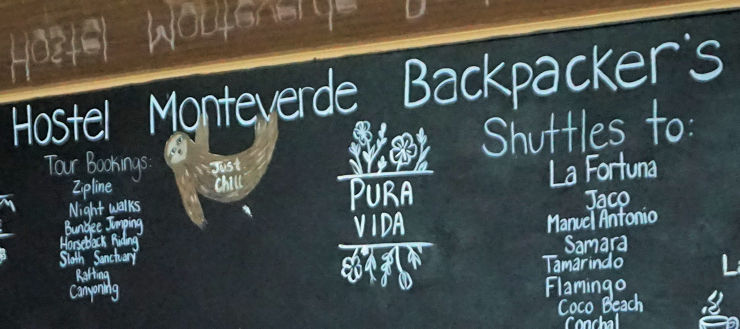 Hostel Monteverde
Hostel Monteverde Backpacker's
Tour Bookings:
Zipline
Night walks
Bungee Jumping
Horseback Riding
Sloth Sanctuary
Rafting
Canyoning
Just
Chill
PURA
VIDA
Shuttles to:
La Fortuna
Jaco
Manuel Antonio
Samara
Tamarindo
Flamingo
Coco Beach
Conchal